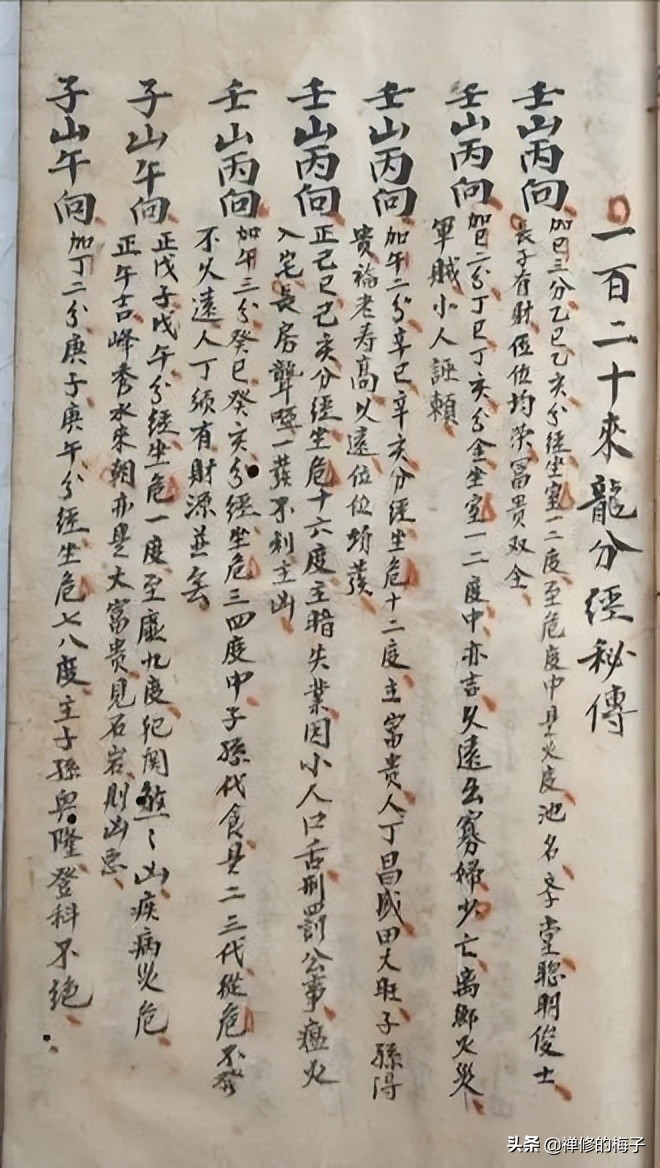 一百二十來龍分經秘傳
壬山丙向 加巳三分乙巳乙亥分經坐室一二度至危度中是火度池名孝堂聰明俊士
長子有財位位均榮富貴双全
壬山丙向 加巳二分丁巳丁亥分金坐室一二度中亦言久遠出寡婦少亡離鄉火災
軍賊小人誣賴
壬山丙向 加午二分辛巳辛亥分經坐危十二度主富貴人丁昌盛田大旺子孫得
貴福老寿高久遠位位頭發
壬山丙向 正己巳己亥分經坐危十六度主瞎失業因小人口舌刑罰公事瘟火
入宅長房聾啞一發不利主凶
壬山丙向 加午三分癸巳癸亥分經坐危三四度中子孫代食是二三代從危不發
不久遠人丁須有財源並無
子山午向 正戊子戊午分經坐危一度至虛九度犯関煞〻凶疾病災危
正午吉峰秀水來朝亦是大富貴見石岩則凶惡
子山午向 加丁二分庚子庚午分經坐危七八度主子孫興隆登科不絕
头条 @禅修的梅子